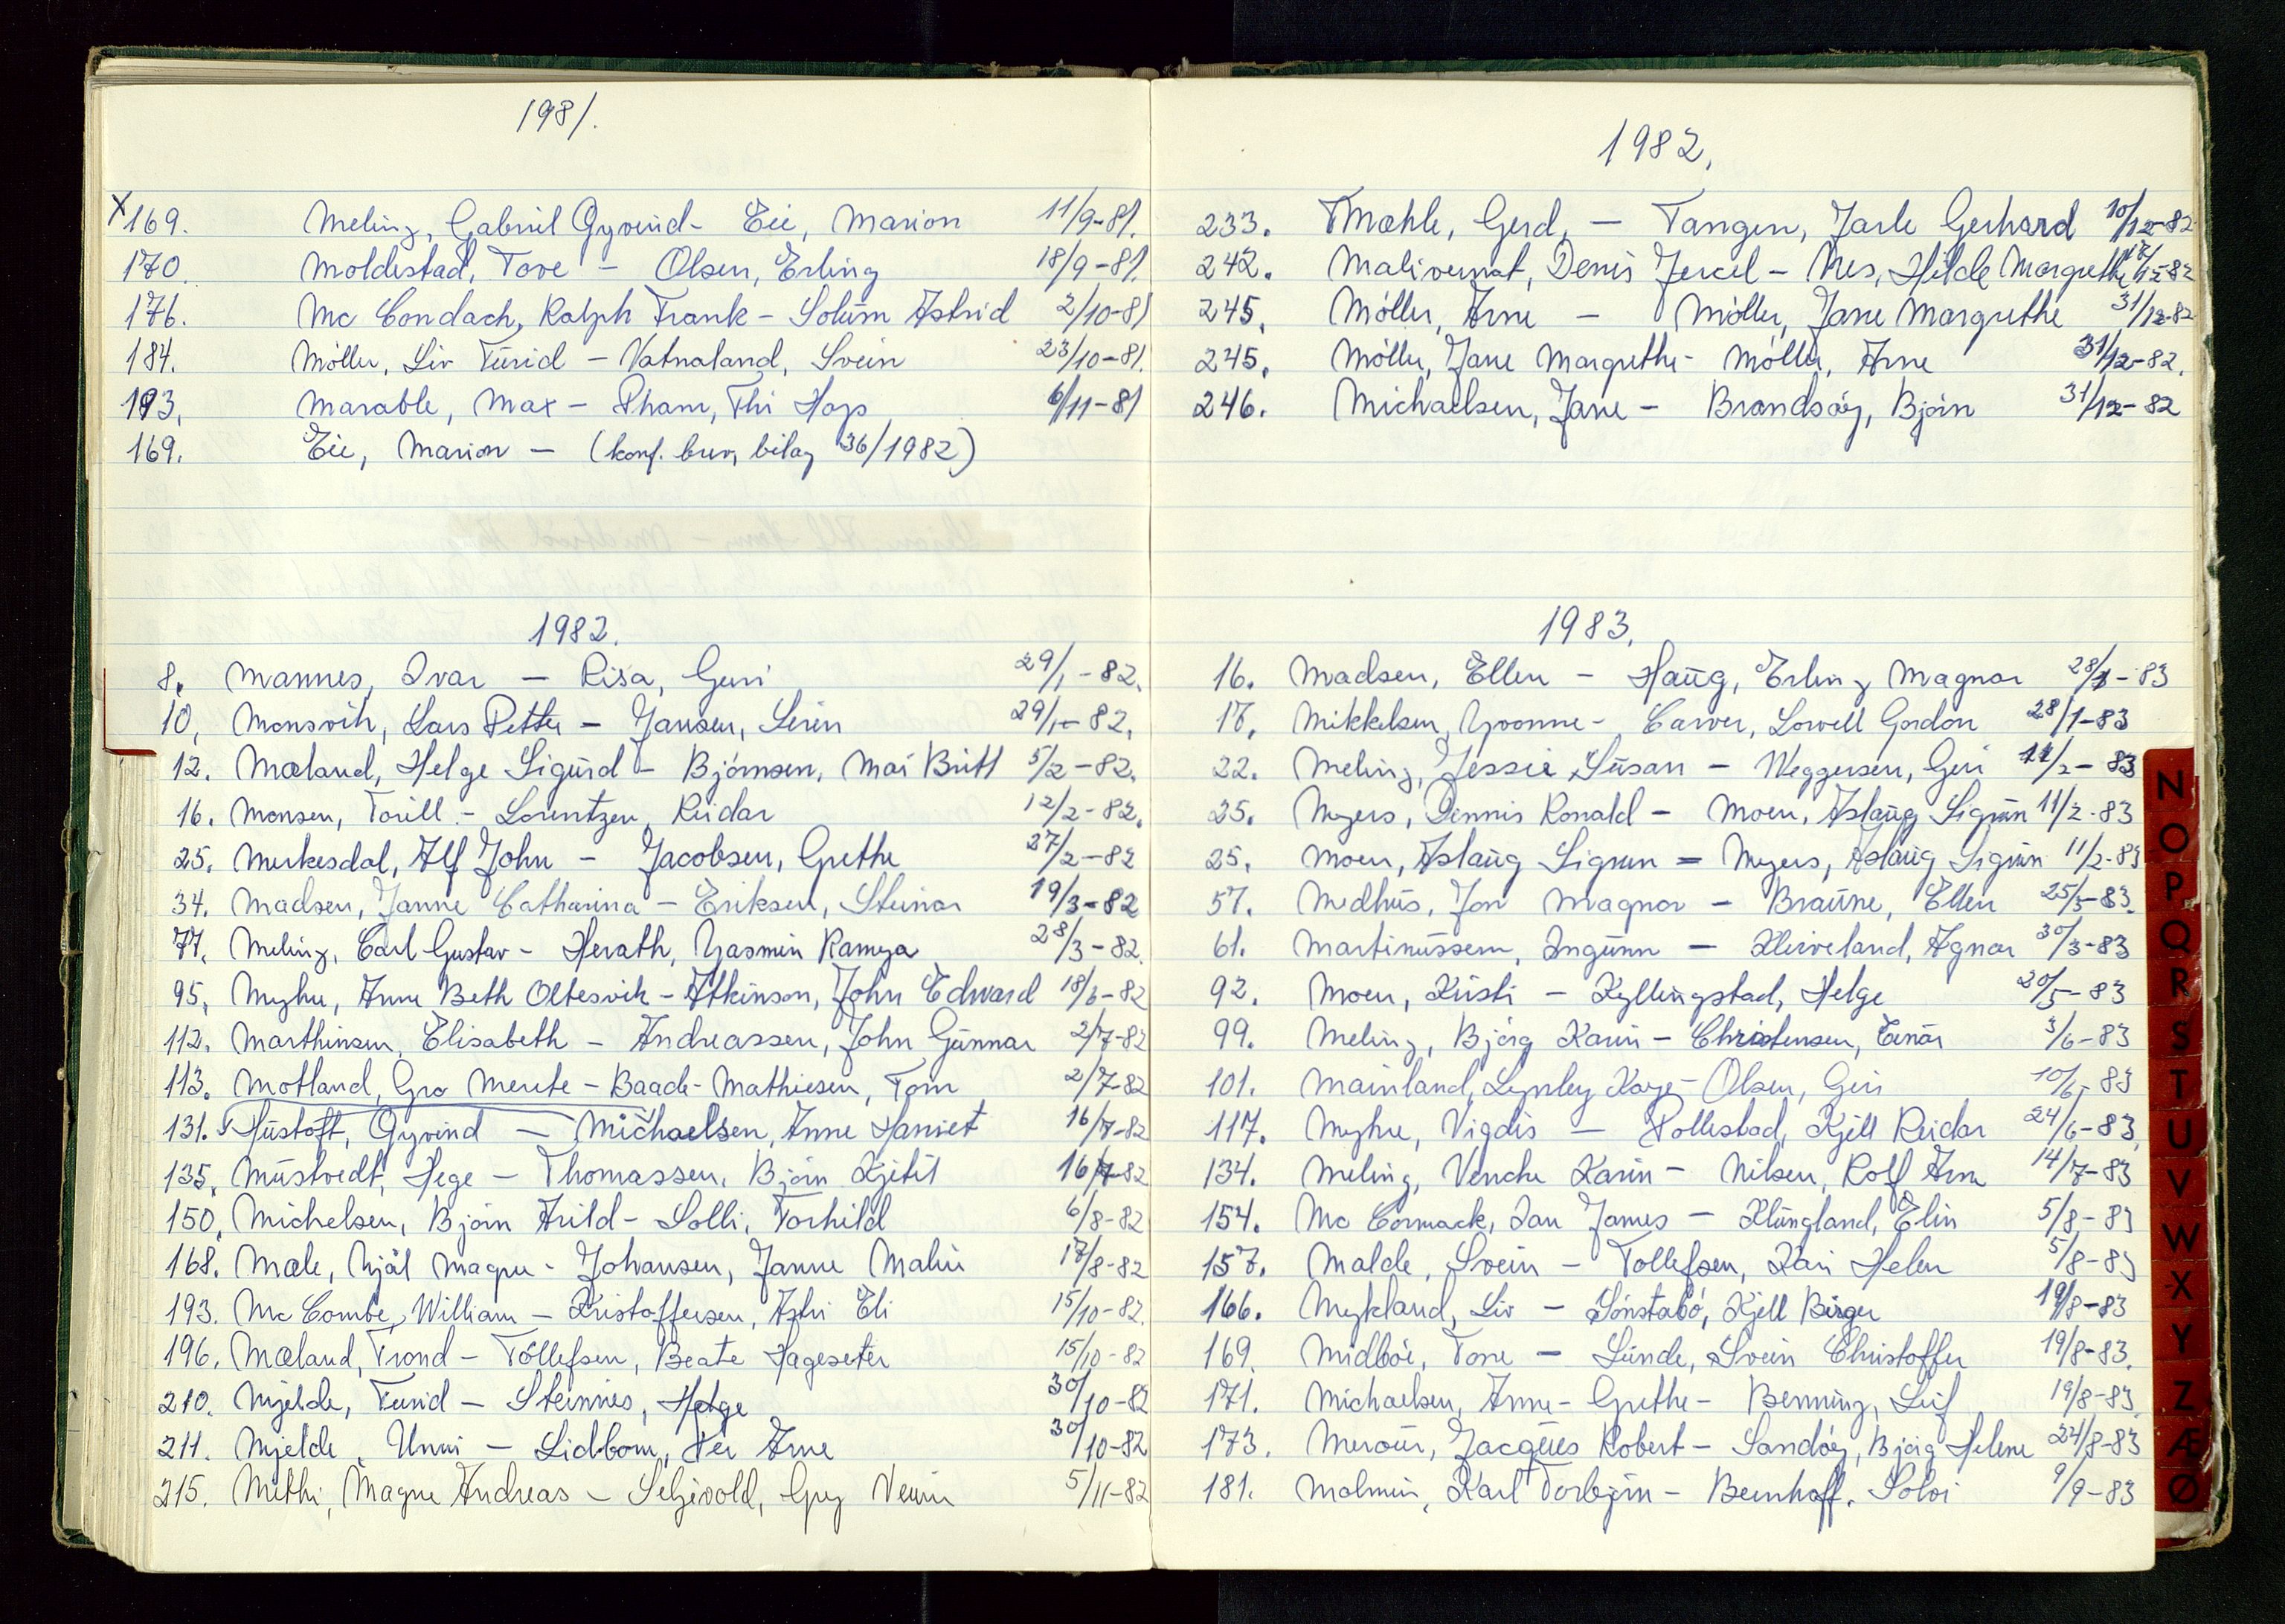 1981.
X 169. Meling, Gabriel Øyvind - Eie, Marion 11/9-81.
170. Moldestad, Tove - Olsen, Erling 18/9-81.
176. Mc Condach, Ralph Frank - Solum Astrid 2/10-81
184. Möller, Liv Turid - Vatnaland, Svein 23/10-81.
193. Marable, Max - Pham, Thi Hop 6/11-81
169. Eie, Marion - (konf. brev, bilag 36/1982)
1982.
8. Mannes, Ivar - Risa, Guri 29/1-82.
10. Monsvik, Lars Petter - Jansen, Siren 29/1-82.
12. Mæland, Helge Sigurd - Björnsen, Mai Britt 5/2-82.
16. Monsen, Torill - Lorentzen, Reidar 12/2-82.
25. Merkesdal, Alf John - Jacobsen, Grethe 27/2-82
34. Madsen, Janne Catharina - Eriksen, Steinar 19/3-82
77. Meling, Carl Gustav - Herath, Yasmin Ramya 28/3-82.
95. Myhre, Anne Beth Oltesvik - Atkinson, John Edward 18/6-82
112. Marthinsen, Elisabeth - Andreassen, John Gunnar 2/7-82
113. Motland, Gro Merete - Baade-Mathiesen, Tom 2/7-82
131. Hustoft, Øyvind - Michaelsen, Anne Harriet 16/7-82
135. Mustvedt, Hege - Thomassen, Björn Kjetil 16/7-82
150. Michelsen, Björn Arild - Solli, Torhild 6/8-82
168. Mæle, Njål Magne - Johansen, Janne Malin 17/8-82
193. Mc Combe, William - Kristoffersen, Astri Eli 15/10-82.
196. Mæland, Trond - Tollefsen, Beate Hageseter 15/10-82
210. Mjelde, Turid - Steinnes, Helge 30/10-82
211. Mjelde, Unni - Lidbom, Per Arne 30/10-82
215. Methi, Magne Andreas - Selvold, Grey 5/11-82
1982.
233. Mæhle, Gerd, - Tangen, Jarle Gerhard 10/12-82
242. Malivernat, Denis - Nes, Hilde Margrethe 17/12-82
245. Möller, Arne - Möller, Jane Margrethe 31/12-82
245. Möller, Jane Margrethe - Möller, Arne 31/12-82.
246. Michaelsen, Jane - Brandsöy, Björn 31/12-82
1983.
16. Madsen, Ellen - Haug, Erling Magnar 28/1-83
17. Mikkelsen, Yvonne - Carver, Lowell Gordon 28/1-83
22. Meling, Jessie Susan - Weggersen, Geir 11/2-83
25. Myers, Dennis Ronald - Moen, Aslaug Sigrun 11/2-83
25. Moen, Aslaug Sigrun = Myers, Aslaug Sigrun 11/2-83
57. Medhus, Jon Magnar - Braune, Ellen 25/3-83.
61. Martinussen, Ingunn - Kleiveland, Agnar 30/3-83
92. Moen, Kirsti - Kyllingstad, Helge 20/5-83
99. Meling, Björg Karin - Christensen, Einar 3/6-83
101. Mainland, Lynley Kaye - Olsen, Geir 10/6-83
117. Myhre, Vigdis - Pollestad, Kjell Reidar 24/6-83.
134. Meling, Venche Karin - Nilsen, Rolf Arne 14/7-83
154. Mc Cormack, Ian James - Klungland, Elin 5/8-83
157. Malde, Svein - Tollefsen, Kari Helen 5/8-83
166. Mykland, Liv - Sönstabö, Kjell Birger 19/8-83
169. Midböe, Tone - Lunde, Svein Christoffer 19/8-83.
171. Michaelsen, Anne-Grethe - Benning, Leif 19/8-83.
173. Merour, Jacques Robert - Sandöy, Björg Helene 24/8-83
181. Malmin, Karl Torbjörn - Bernhoff, Solvi 9/9-83
N
O
P
Q
R
S
T
U
V
W
X
Y
Z
Æ
Ø